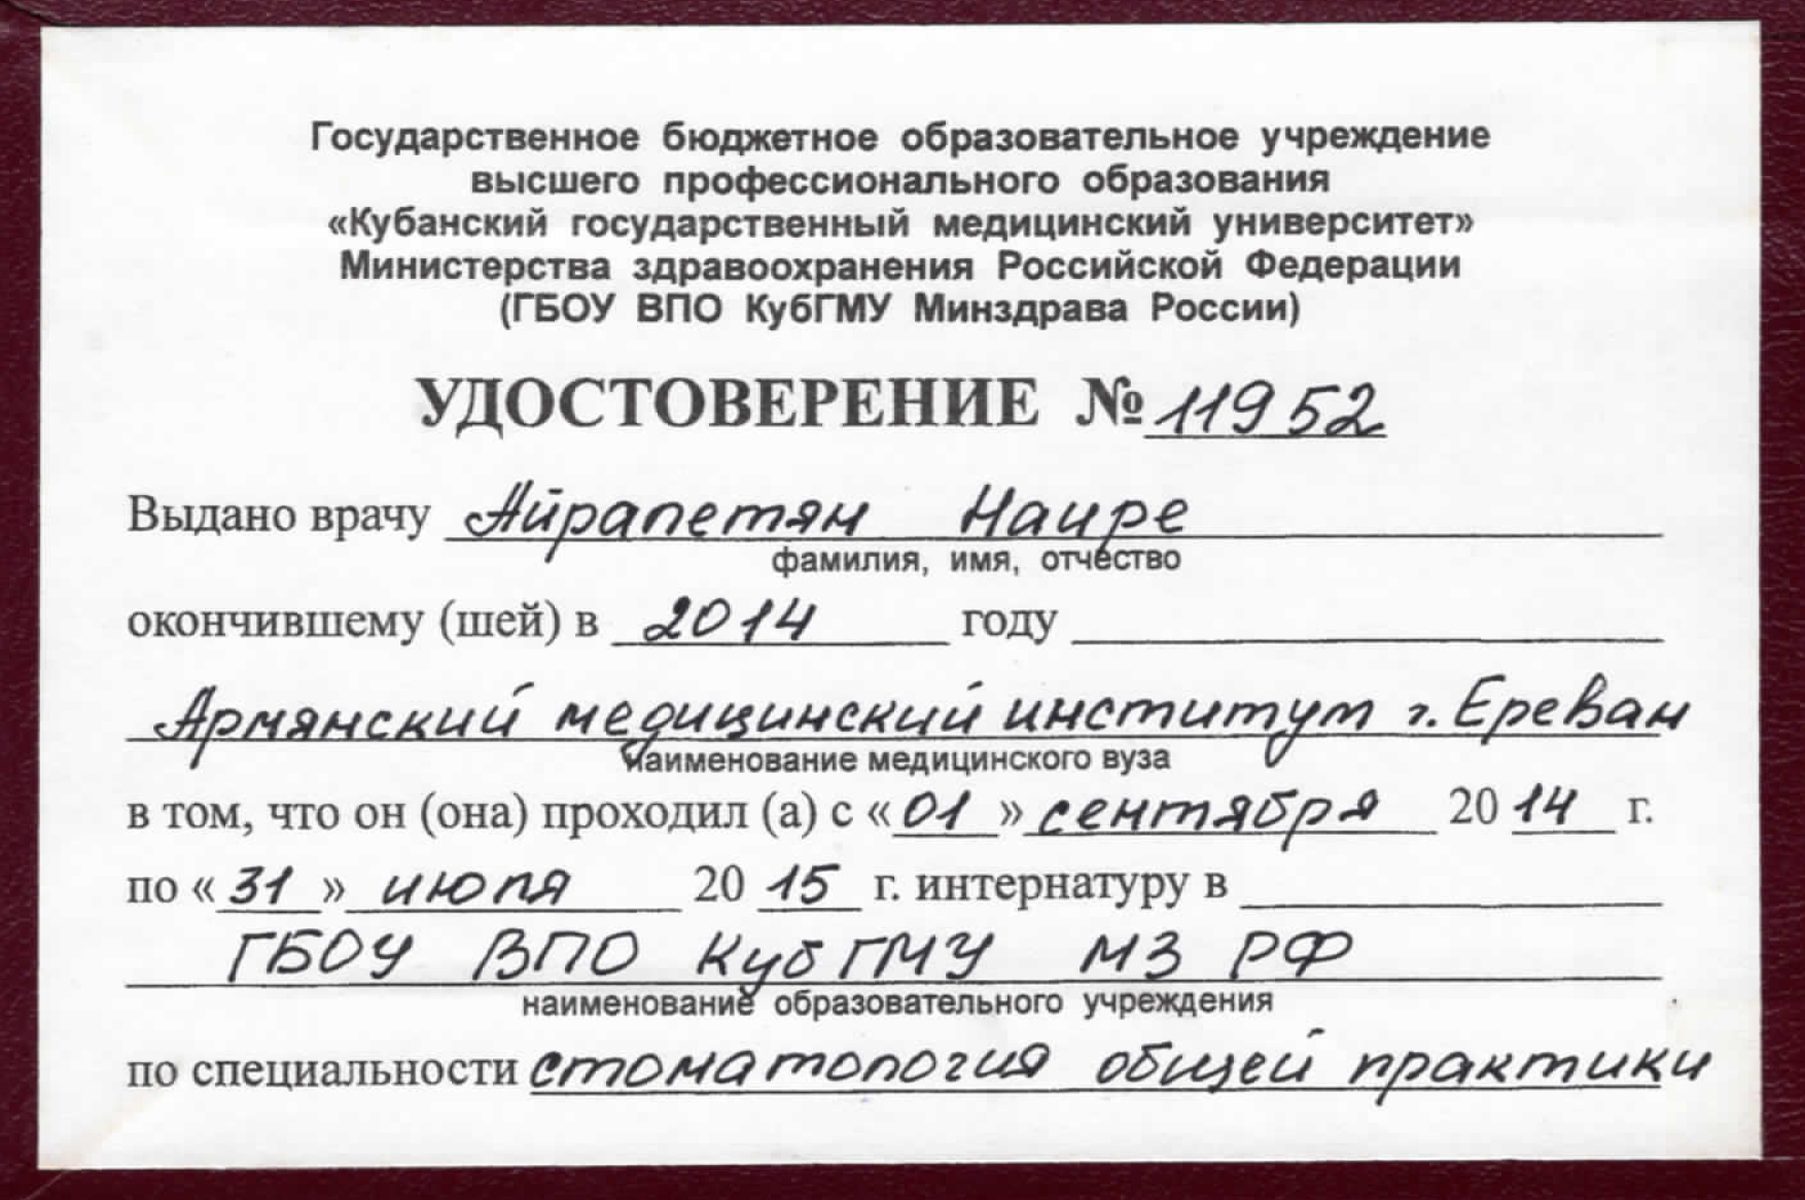 Государственное бюджетное образовательное учреждение
высшего профессионального образования
«Кубанский государственный медицинский университет»
Министерства здравоохранения Российской Федерации
(ГБОУ ВПО КубГМУ Минздрава России)
УДОСТОВЕРЕНИЕ № 11952
Выдано врачу Айрапетян Наире
фамилия, имя, отчество
окончившему (шей) в 2014 году
Армянский медицинский институт г. Ереван
наименование медицинского вуза
в том, что он (она) проходил (а) с «01» сентября 2014 г.
по «31» июля 2015 г. интернатуру в
ГБОУ ВПО КубГМУ МЗ РФ
наименование образовательного учреждения
по специальности стоматология общей практики